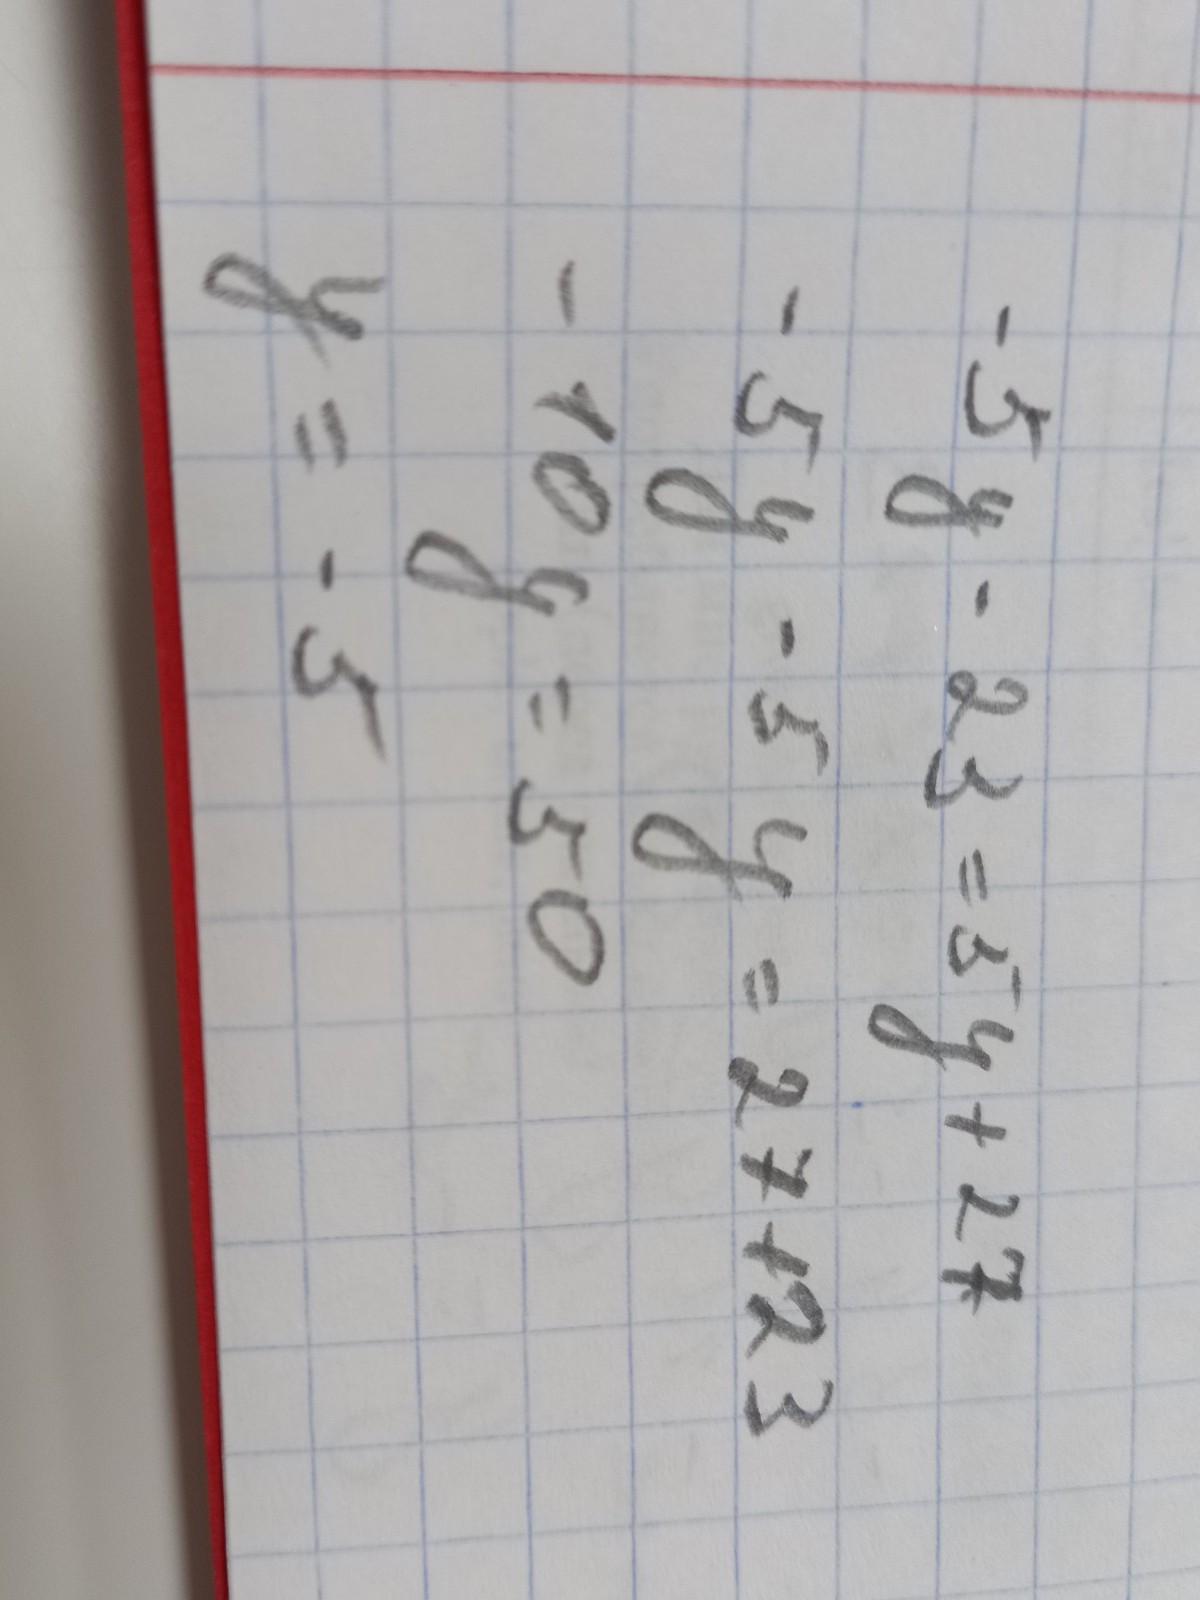 -5y - 23 = 5y + 27
-5y - 5y = 27 + 23
- 10y = 50
y = - 5